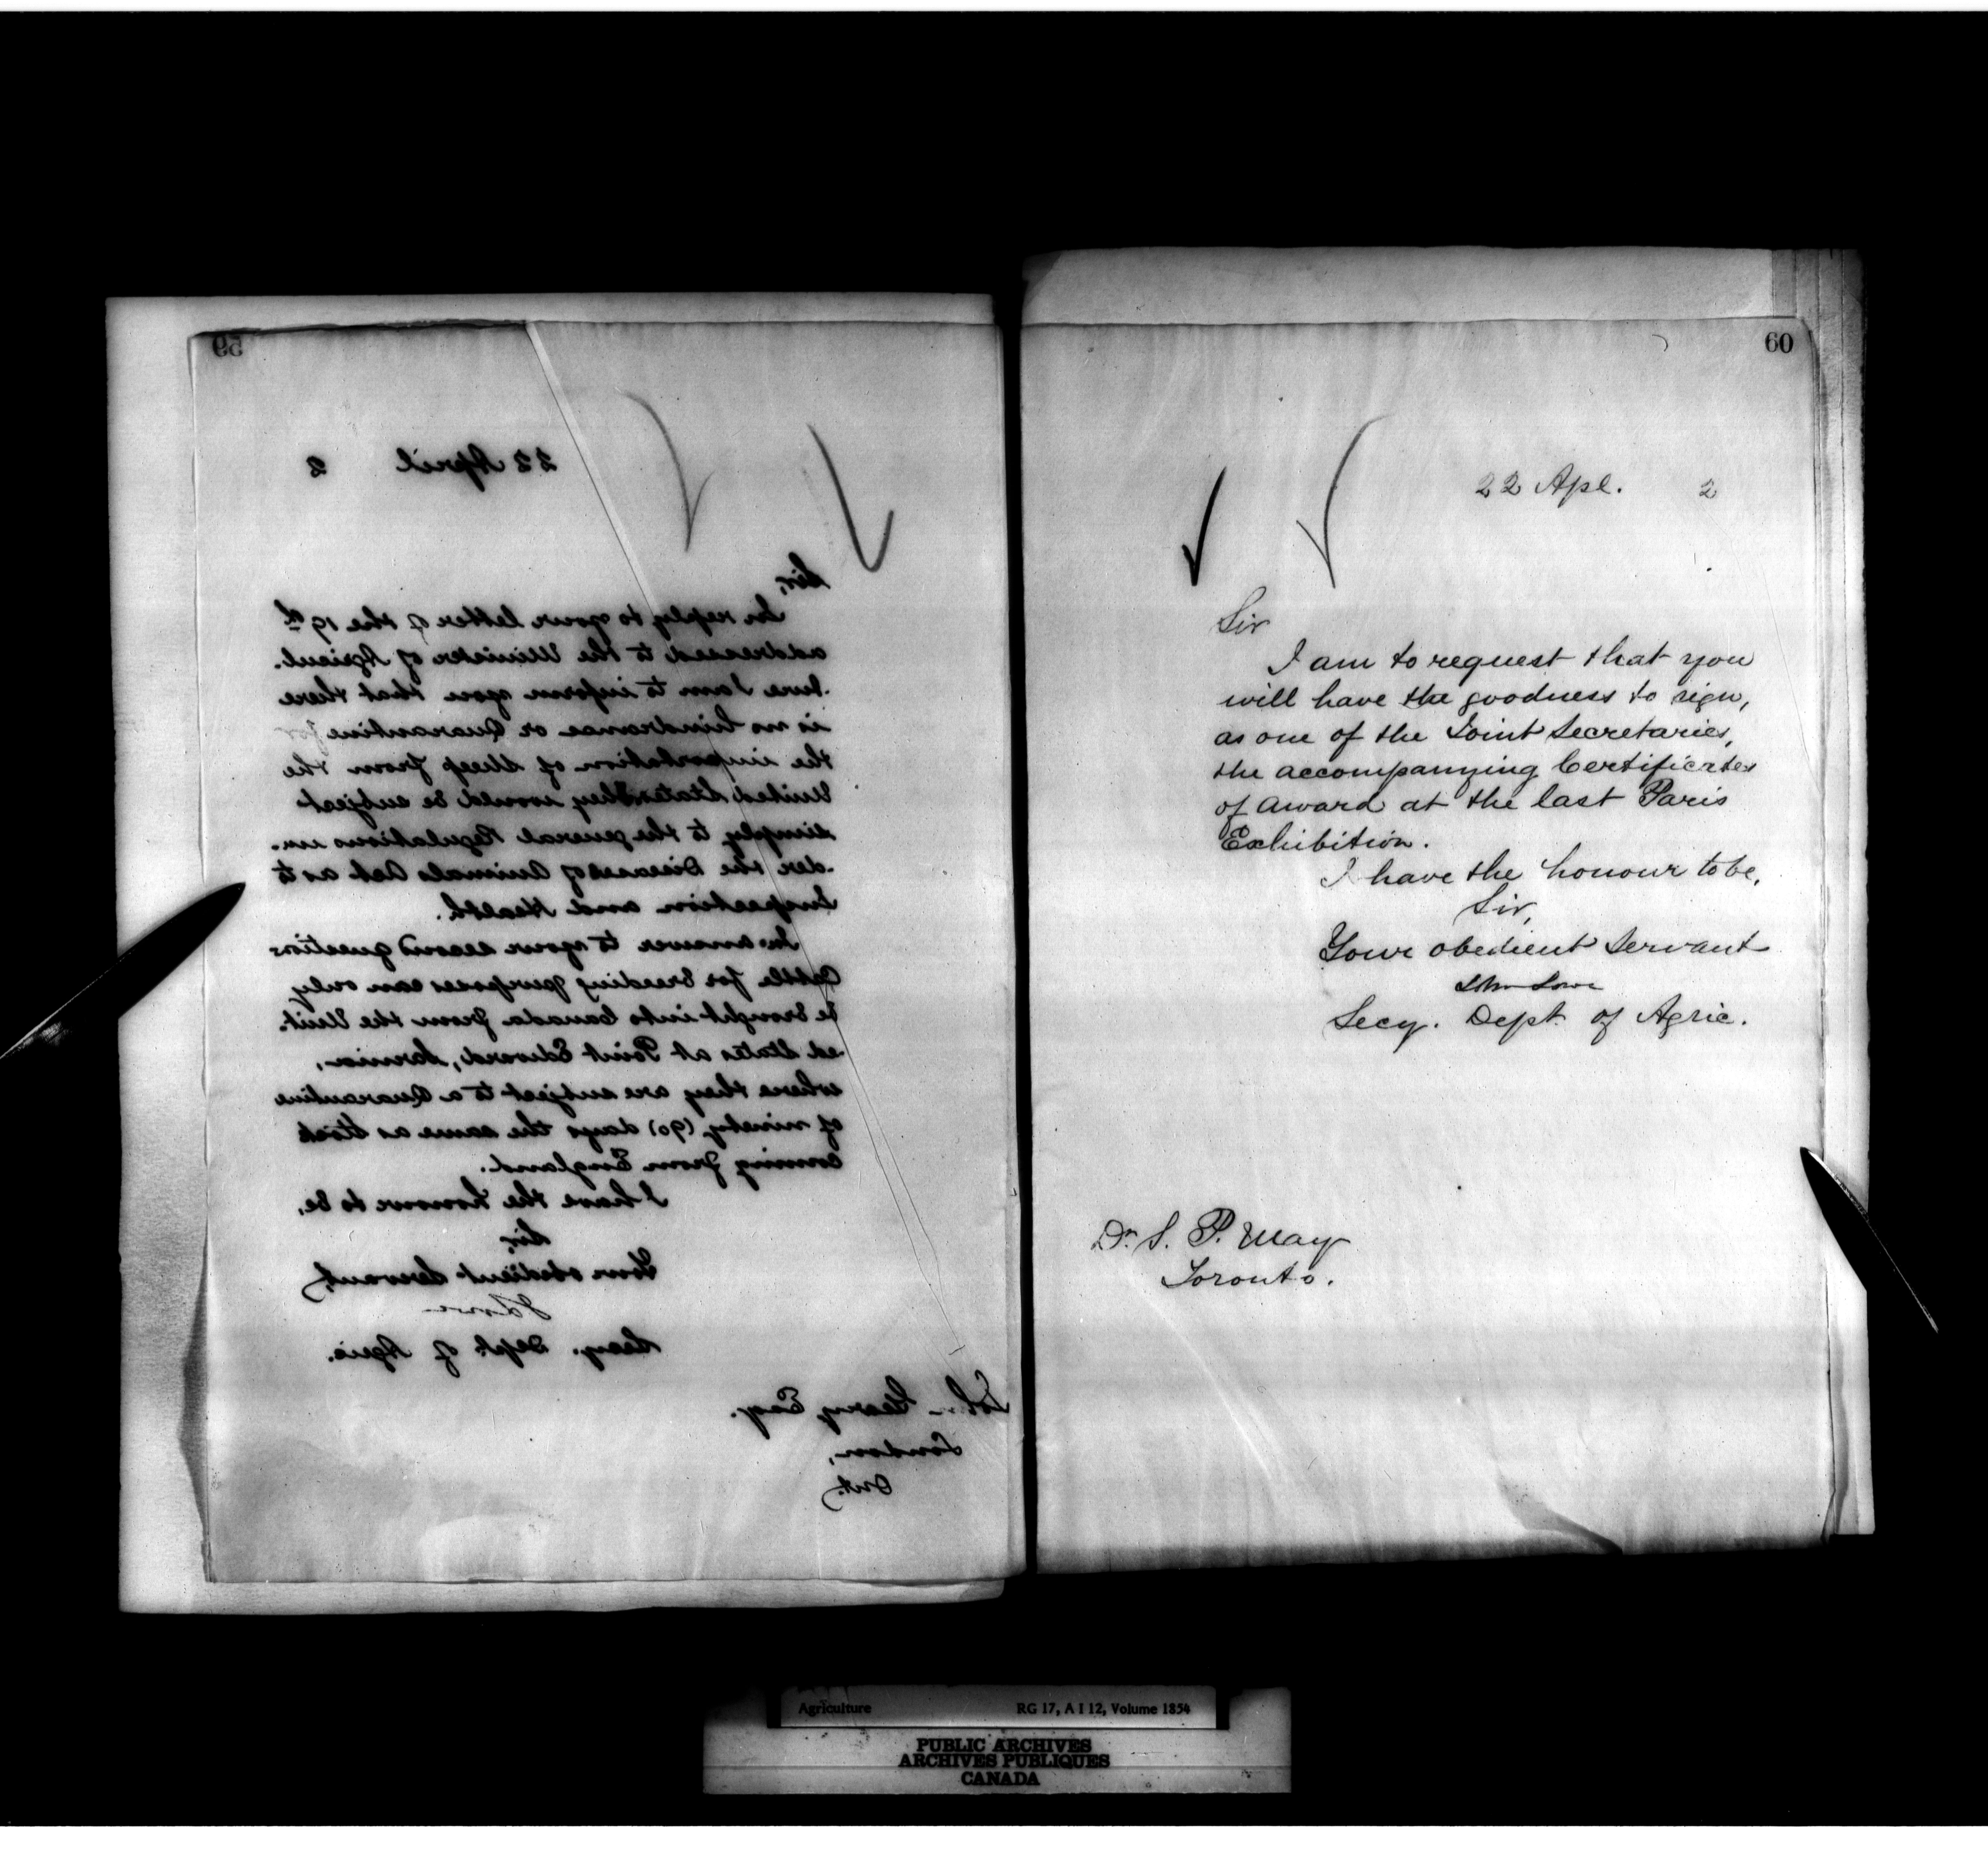 59
22 April 2
Sir,
In reply to your letter of the 19th
addressed to the Minister of Agricul-
ture I am to inform you that there
is no hindrance or Quarantine for
the importation of sheep from the
United States they would be subject
simply to the general Regulations un-
der the Diseases of Animals Act as to
Inspection and Health.
In answer to your second question
Cattle for breeding purposes can only
be brought into Canada from the Unit-
ed States at Point Edward, Sarnia,
where they are subject to a Quarantine
of ninety (90) days the same as stock
coming from England.
I have the honour to be,
Sir,
Your obedient Servant,
J Lowe
Secy. Dept. of Agric.
John Geary Esq.
London,
Ont.
60
22 Apl. 2
Sir
I am to request that you
will have the goodness to sign,
as one of the Joint Secretaries,
the accompanying Certificates
of award at the last Paris
Exhibition.
I have the honour to be,
Sir,
Your obedient Servant
John Lowe
Secy. Dept. of Agric.
Dr. S. P. May
Toronto.
Agriculture RG 17, A I 12, Volume 1854
PUBLIC ARCHIVES
ARCHIVES PUBLIQUES
CANADA